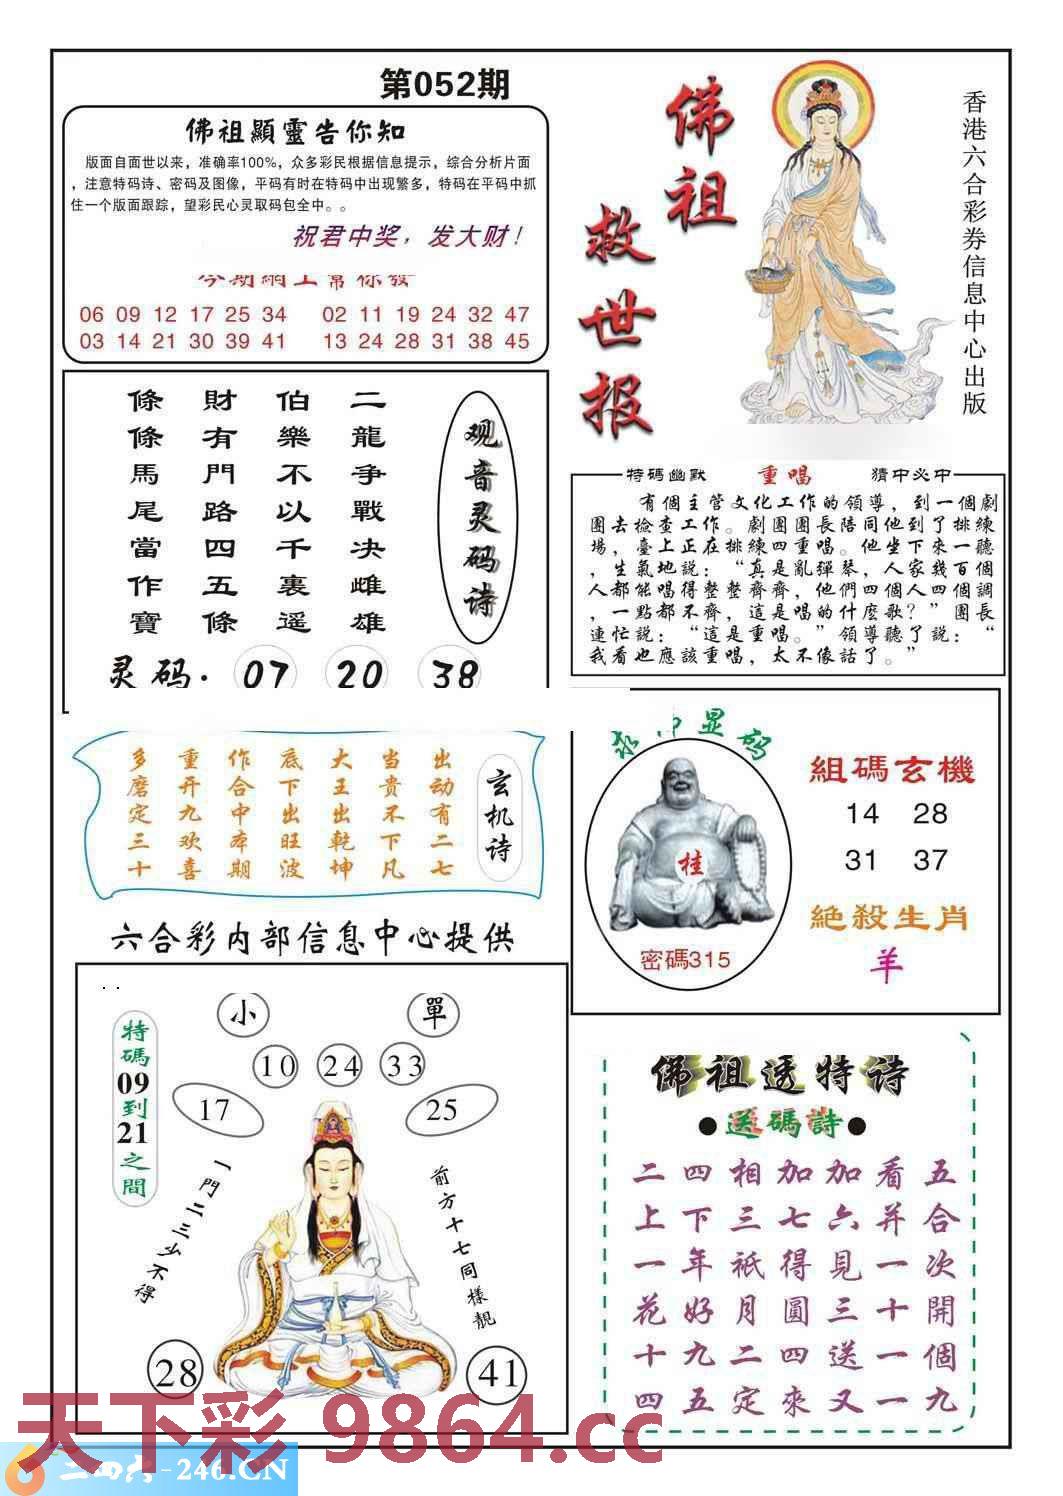 第052期
佛祖顯靈告你知
版面自面世以来，准确率100%，众多彩民根据信息提示，综合分析片面
，注意特码诗、密码及图像，平码有时在特码中出现繁多，特码在平码中抓
住一个版面跟踪，望彩民心灵取码包全中。。
祝君中奖，发大财！
今期網上幫你發
06 09 12 17 25 34 02 11 19 24 32 47
03 14 21 30 39 41 13 24 28 31 38 45
佛祖
救世报
香港六合彩券信息中心出版
观音灵码诗
二龍争戰决雌雄
伯樂不以千裏遥
財有門路四五條
條條馬尾當作寶
灵码.
07 20 38
特碼幽默 重唱 猜中必中
有個主管文化工作的領導，到一個劇
團去檢查工作。劇團團長陪同他到了排練
場，臺上正在排練四重唱。他坐下來一聽
，生氣地説：“真是亂彈琴，人家幾百個
人都能唱得整整齊齊，他們四個人四個調
，一點都不齊，這是唱的什麼歌？”團長
連忙説：“這是重唱。”領導聽了説：“
我看也應該重唱，太不像話了。”
玄机诗
出动有二七
当贵不下凡
大王出乾坤
底下出旺波
作合中本期
重开九欢喜
多磨定三十
显码
桂
密碼315
組碼玄機
14 28
31 37
絕殺生肖
羊
六合彩内部信息中心提供
小
單
10 24 33
17
25
特碼09到21之間
一門二三少不得
前方十七同樣靚
28
41
佛祖透特诗
●送碼詩●
二四相加加看五
上下三七六并合
一年祇得見一次
花好月圓三十開
十九二四送一個
四五定來又一九
天下彩 9864.cc
二四六-246.CN